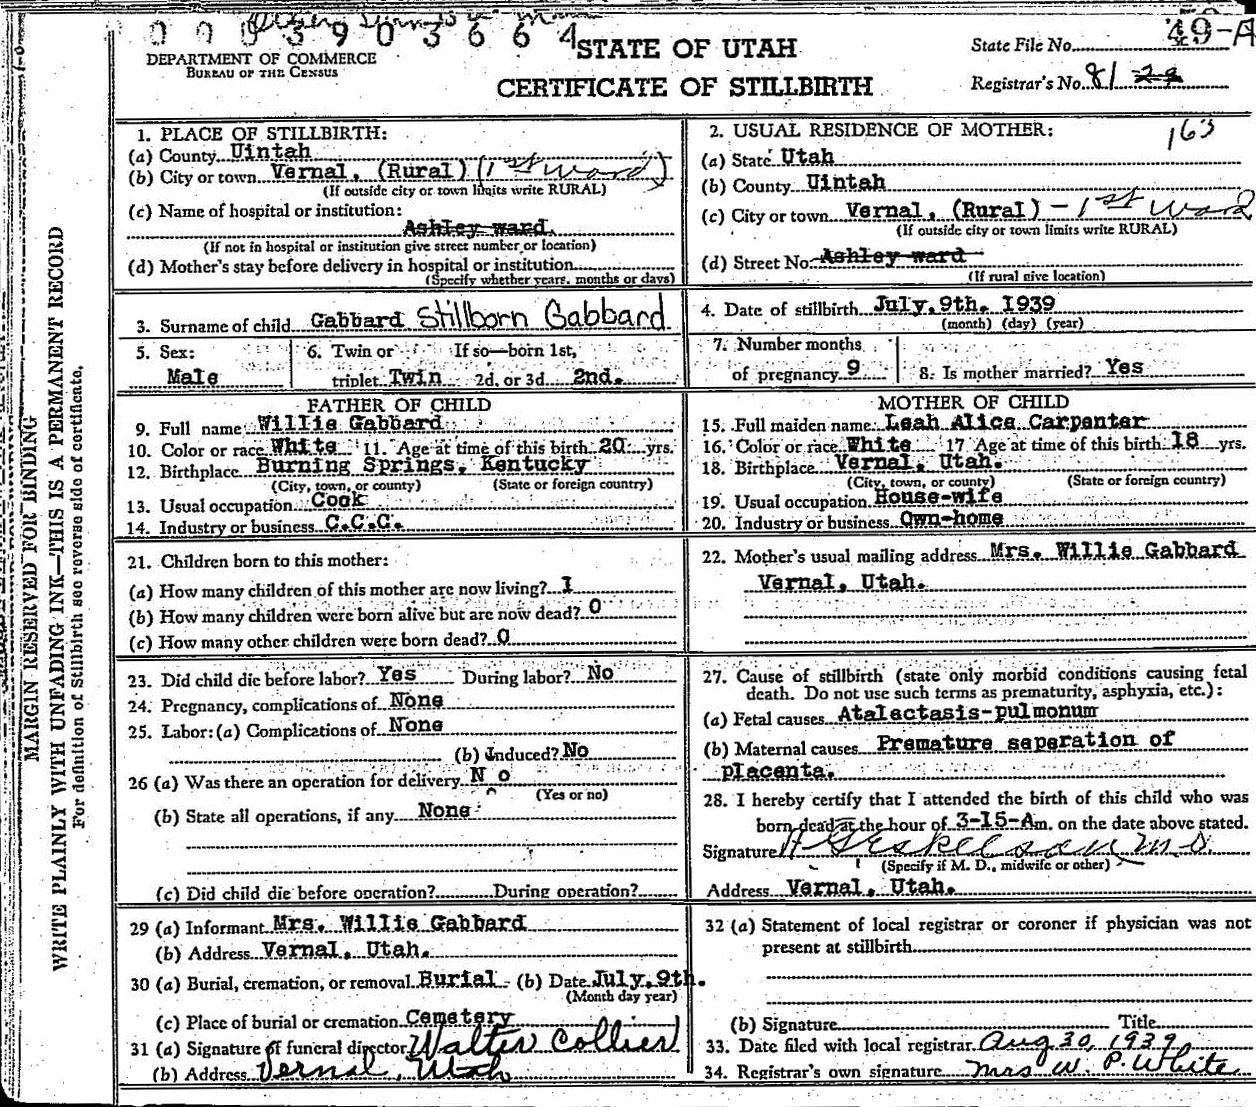 0 0 0 3 9 0 3 6 6 4
49-A
STATE OF UTAH
DEPARTMENT OF COMMERCE
BUREAU OF THE CENSUS
CERTIFICATE OF STILLBIRTH
State File No.
Registrar's No. 81 29
1. PLACE OF STILLBIRTH:
(a) County Uintah
(b) City or town Vernal, (Rural) (1st ward)
(If outside city or town limits write RURAL)
(c) Name of hospital or institution:
Ashley ward.
(If not in hospital or institution give street number or location)
(d) Mother's stay before delivery in hospital or institution
(Specify whether years, months or days)
2. USUAL RESIDENCE OF MOTHER: 163
(a) State Utah
(b) County Uintah
(c) City or town Vernal, (Rural) - 1st Ward
(If outside city or town limits write RURAL)
(d) Street No. Ashley ward
(If rural give location)
3. Surname of child Gabbard Stillborn Gabbard
4. Date of stillbirth July. 9th. 1939
(month) (day) (year)
5. Sex:
Male
6. Twin or If so—born 1st,
triplet Twin 2d. or 3d 2nd.
7. Number months
of pregnancy 9
8. Is mother married? Yes
FATHER OF CHILD
9. Full name Willie Gabbard
10. Color or race White 11. Age at time of this birth 20 yrs.
12. Birthplace Burning Springs, Kentucky
(City, town, or county) (State or foreign country)
13. Usual occupation Cook
14. Industry or business C.C.C.
MOTHER OF CHILD
15. Full maiden name Leah Alice Carpenter
16. Color or race White 17 Age at time of this birth 18 yrs.
18. Birthplace Vernal, Utah.
(City, town, or county) (State or foreign country)
19. Usual occupation House-wife
20. Industry or business Own-home
21. Children born to this mother:
(a) How many children of this mother are now living? 1
(b) How many children were born alive but are now dead? 0
(c) How many other children were born dead? 0
22. Mother's usual mailing address Mrs. Willie Gabbard
Vernal, Utah.
23. Did child die before labor? Yes During labor? No
24. Pregnancy, complications of None
25. Labor: (a) Complications of None
(b) Induced? No
26 (a) Was there an operation for delivery N o
(Yes or no)
(b) State all operations, if any None
(c) Did child die before operation? During operation?
27. Cause of stillbirth (state only morbid conditions causing fetal
death. Do not use such terms as prematurity, asphyxia, etc.):
(a) Fetal causes Atalectasis-pulmonum
(b) Maternal causes Premature seperation of
placenta.
28. I hereby certify that I attended the birth of this child who was
born dead at the hour of 3-15-Am. on the date above stated.
Signature M.D.
(Specify if M. D., midwife or other)
Address Vernal, Utah.
29 (a) Informant Mrs. Willie Gabbard
(b) Address Vernal, Utah.
30 (a) Burial, cremation, or removal Burial (b) Date July. 9th.
(Month day year)
(c) Place of burial or cremation Cemetery
31 (a) Signature of funeral director Walter Collier
(b) Address Vernal, Utah
32 (a) Statement of local registrar or coroner if physician was not
present at stillbirth
(b) Signature Title
33. Date filed with local registrar Aug 30, 1939
34. Registrar's own signature Mrs W. P. White
MARGIN RESERVED FOR BINDING
WRITE PLAINLY WITH UNFADING INK—THIS IS A PERMANENT RECORD
For definition of Stillbirth see reverse side of certificate.